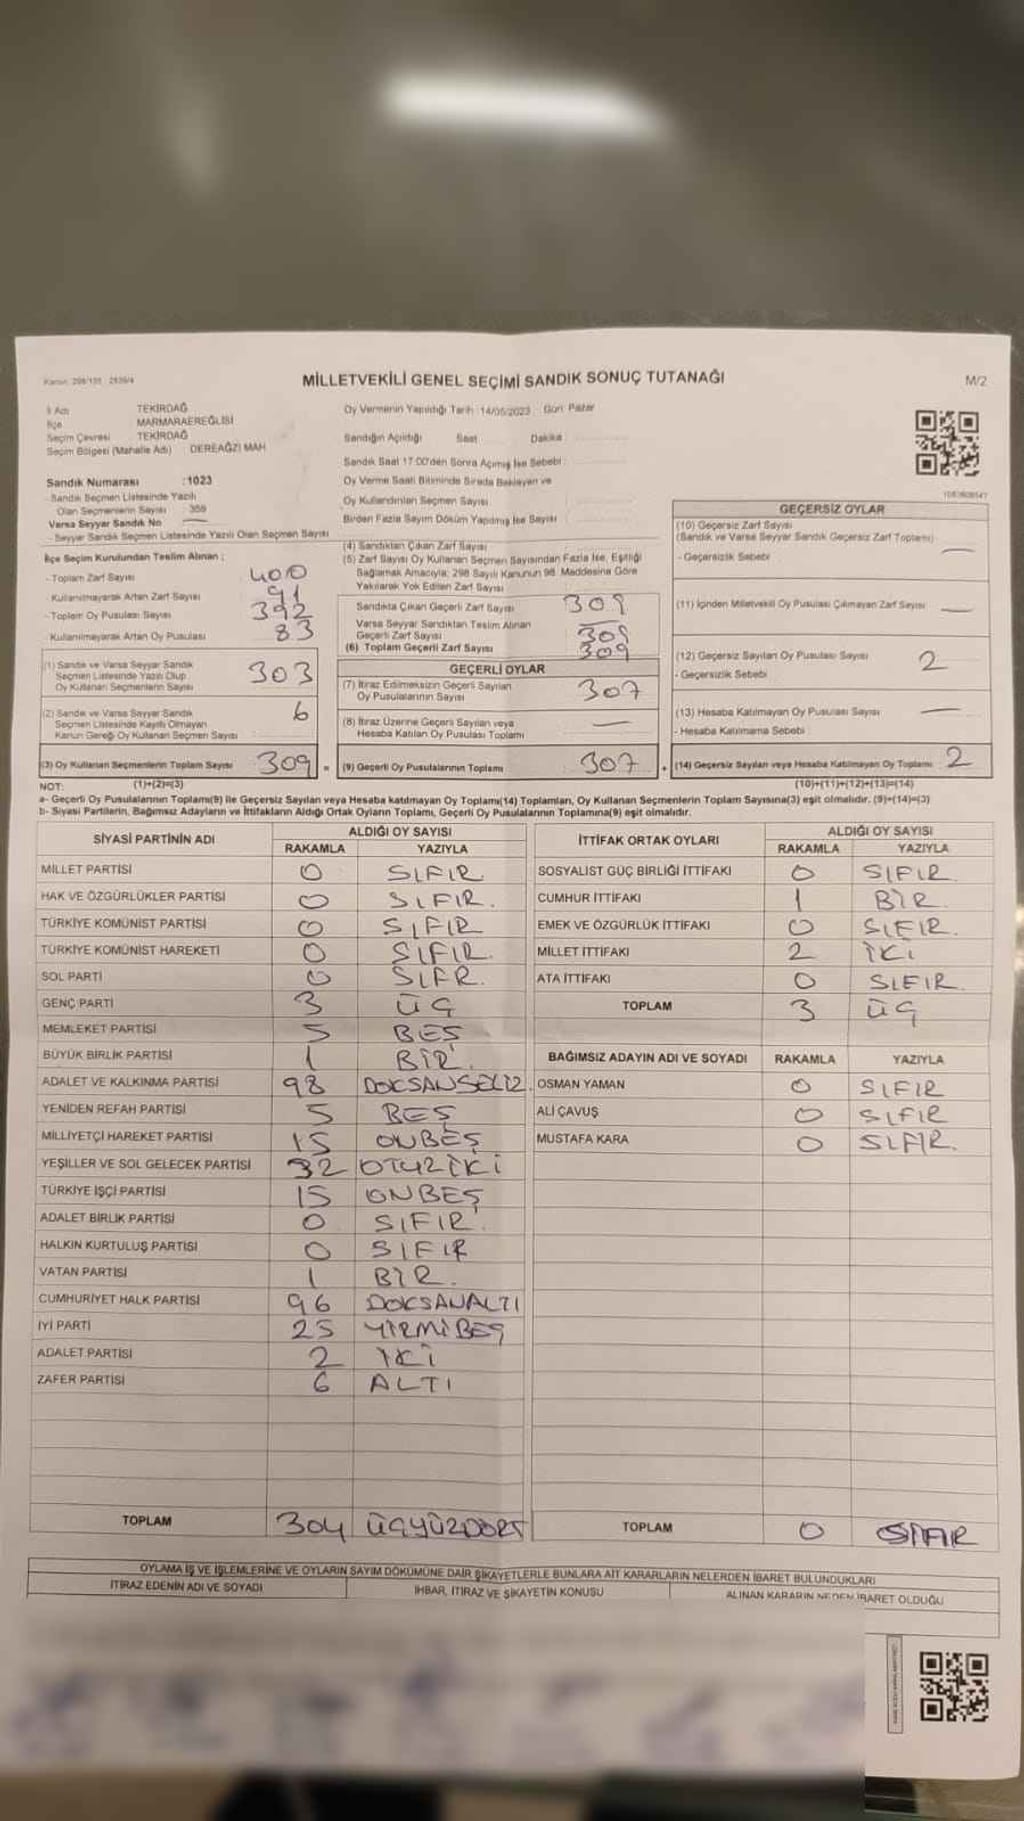 MİLLETVEKİLİ GENEL SEÇİMİ SANDIK SONUÇ TUTANAĞI
M/2
İl Adı TEKİRDAĞ
İlçe MARMARAEREĞLİSİ
Seçim Çevresi TEKİRDAĞ
Seçim Bölgesi (Mahalle Adı) DEREAĞZI MAH
Sandık Numarası :1023
Sandık Seçmen Listesinde Yazılı
Olan Seçmenlerin Sayısı 359
Varsa Seyyar Sandık No
Seyyar Sandık Seçmen Listesinde Yazılı Olan Seçmen Sayısı
İlçe Seçim Kurulundan Teslim Alınan :
- Toplam Zarf Sayısı 400
- Kullanılmayarak Artan Zarf Sayısı 91
- Toplam Oy Pusulası Sayısı 392
- Kullanılmayarak Artan Oy Pusulası 83
(1) Sandık ve Varsa Seyyar Sandık
Seçmen Listesinde Yazılı Olup
Oy Kullanan Seçmenlerin Sayısı 303
(2) Sandık ve Varsa Seyyar Sandık
Seçmen Listesinde Kayıtlı Olmayan
Kanun Gereği Oy Kullanan Seçmen Sayısı 6
(3) Oy Kullanan Seçmenlerin Toplam Sayısı 309 =
Oy Vermenin Yapıldığı Tarih : 14/05/2023 Gün: Pazar
Sandığın Açıldığı Saat Dakika
Sandık Saat 17:00'den Sonra Açılmış İse Sebebi :
Oy Verme Saati Bitiminde Sırada Bekleyen ve
Oy Kullandırılan Seçmen Sayısı
Birden Fazla Sayım Döküm Yapılmış İse Sayısı
(4) Sandıktan Çıkan Zarf Sayısı
(5) Zarf Sayısı Oy Kullanan Seçmen Sayısından Fazla İse, Eşitliği
Sağlamak Amacıyla; 298 Sayılı Kanunun 98. Maddesine Göre
Yakılarak Yok Edilen Zarf Sayısı
Sandıkta Çıkan Geçerli Zarf Sayısı 309
Varsa Seyyar Sandıktan Teslim Alınan
Geçerli Zarf Sayısı 309
(6) Toplam Geçerli Zarf Sayısı 309
GEÇERLİ OYLAR
(7) İtiraz Edilmeksizin Geçerli Sayılan
Oy Pusulalarının Sayısı 307
(8) İtiraz Üzerine Geçerli Sayılan veya
Hesaba Katılan Oy Pusulası Toplamı
(9) Geçerli Oy Pusulalarının Toplamı 307 +
GEÇERSİZ OYLAR
(10) Geçersiz Zarf Sayısı
(Sandık ve Varsa Seyyar Sandık Geçersiz Zarf Toplamı)
- Geçersizlik Sebebi
(11) İçinden Milletvekili Oy Pusulası Çıkmayan Zarf Sayısı
(12) Geçersiz Sayılan Oy Pusulası Sayısı 2
- Geçersizlik Sebebi
(13) Hesaba Katılmayan Oy Pusulası Sayısı
- Hesaba Katılmama Sebebi
(14) Geçersiz Sayılan veya Hesaba Katılmayan Oy Toplamı 2
NOT: (1)+(2)=(3) (10)+(11)+(12)+(13)=(14)
a- Geçerli Oy Pusulalarının Toplamı(9) ile Geçersiz Sayılan veya Hesaba katılmayan Oy Toplamı(14) Toplamları, Oy Kullanan Seçmenlerin Toplam Sayısına(3) eşit olmalıdır. (9)+(14)=(3)
b- Siyasi Partilerin, Bağımsız Adayların ve İttifakların Aldığı Ortak Oyların Toplamı, Geçerli Oy Pusulalarının Toplamına(9) eşit olmalıdır.
SİYASİ PARTİNİN ADI ALDIĞI OY SAYISI
RAKAMLA YAZIYLA
MİLLET PARTİSİ 0 SIFIR
HAK VE ÖZGÜRLÜKLER PARTİSİ 0 SIFIR.
TÜRKİYE KOMÜNİST PARTİSİ 0 SIFIR
TÜRKİYE KOMÜNİST HAREKETİ 0 SIFIR.
SOL PARTİ 0 SIFR.
GENÇ PARTİ 3 ÜÇ
MEMLEKET PARTİSİ 5 BEŞ
BÜYÜK BİRLİK PARTİSİ 1 BİR.
ADALET VE KALKINMA PARTİSİ 98 DOKSANSEKİZ
YENİDEN REFAH PARTİSİ 5 BEŞ
MİLLİYETÇİ HAREKET PARTİSİ 15 ONBEŞ
YEŞİLLER VE SOL GELECEK PARTİSİ 32 OTUZİKİ
TÜRKİYE İŞÇİ PARTİSİ 15 ONBEŞ
ADALET BİRLİK PARTİSİ 0 SIFIR.
HALKIN KURTULUŞ PARTİSİ 0 SIFIR
VATAN PARTİSİ 1 BİR.
CUMHURİYET HALK PARTİSİ 96 DOKSANALTI
İYİ PARTİ 25 YİRMİBEŞ
ADALET PARTİSİ 2 İKİ
ZAFER PARTİSİ 6 ALTI
TOPLAM 304 ÜÇYÜZDÖRT
İTTİFAK ORTAK OYLARI ALDIĞI OY SAYISI
RAKAMLA YAZIYLA
SOSYALİST GÜÇ BİRLİĞİ İTTİFAKI 0 SIFIR.
CUMHUR İTTİFAKI 1 BİR.
EMEK VE ÖZGÜRLÜK İTTİFAKI 0 SIFIR.
MİLLET İTTİFAKI 2 İKİ
ATA İTTİFAKI 0 SIFIR.
TOPLAM 3 ÜÇ
BAĞIMSIZ ADAYIN ADI VE SOYADI RAKAMLA YAZIYLA
OSMAN YAMAN 0 SIFIR
ALİ ÇAVUŞ 0 SIFIR
MUSTAFA KARA 0 SIFIR.
TOPLAM 0 SIFIR
OYLAMA İŞ VE İŞLEMLERİNE VE OYLARIN SAYIM DÖKÜMÜNE DAİR ŞİKAYETLERLE BUNLARA AİT KARARLARIN NELERDEN İBARET BULUNDUKLARI
İTİRAZ EDENİN ADI VE SOYADI İHBAR, İTİRAZ VE ŞİKAYETİN KONUSU ALINAN KARARIN NEDEN İBARET OLDUĞU